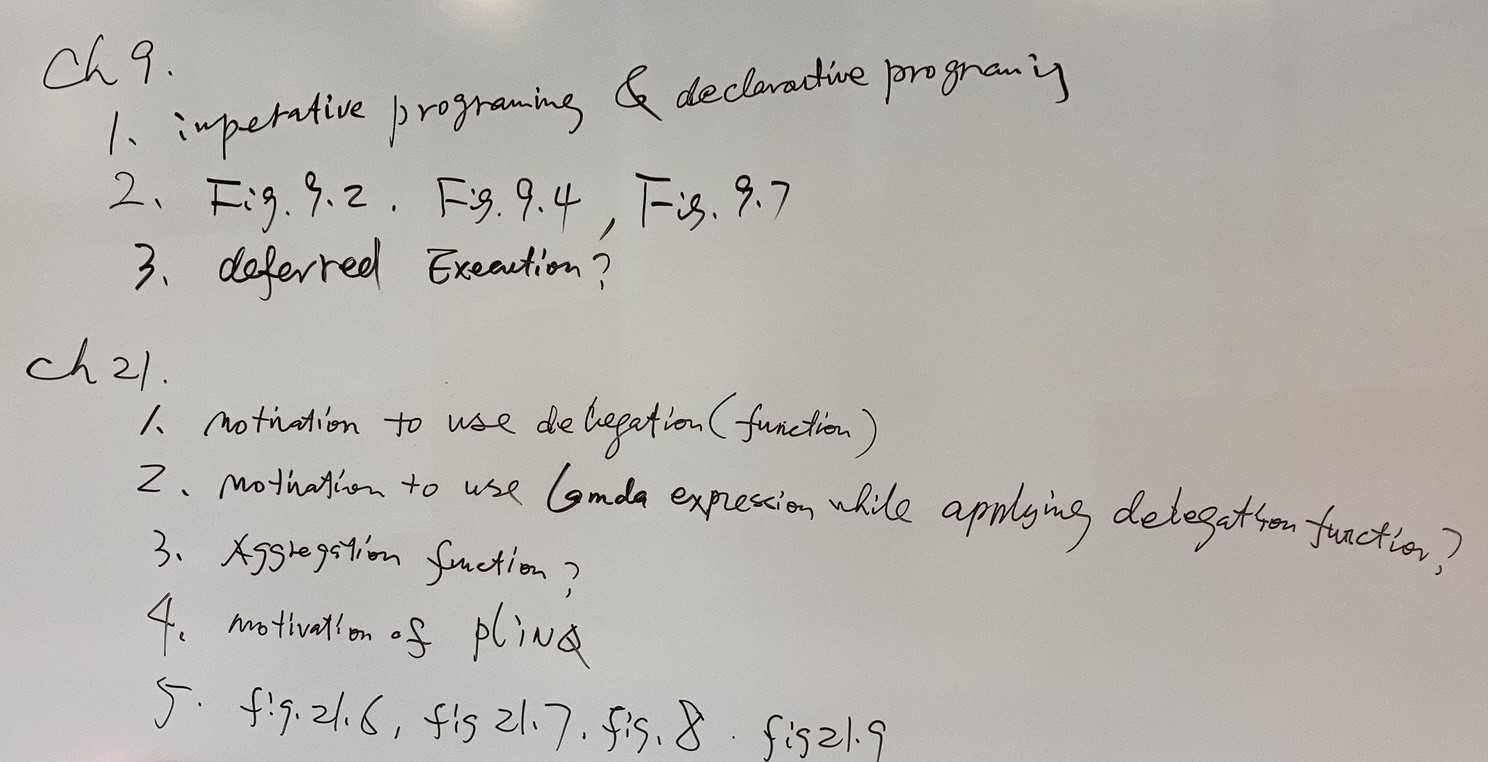 Ch 9.
1. imperative programing & declarative programing
2. Fig. 9.2. Fig. 9.4, Fig. 9.7
3. deferred Execution?
Ch 21.
1. motivation to use delegation (function)
2. motivation to use Lamda expression while applying delegation function?
3. Aggregation function?
4. motivation of PLINQ
5. fig. 21.6, fig 21.7, fig. 8. fig 21.9